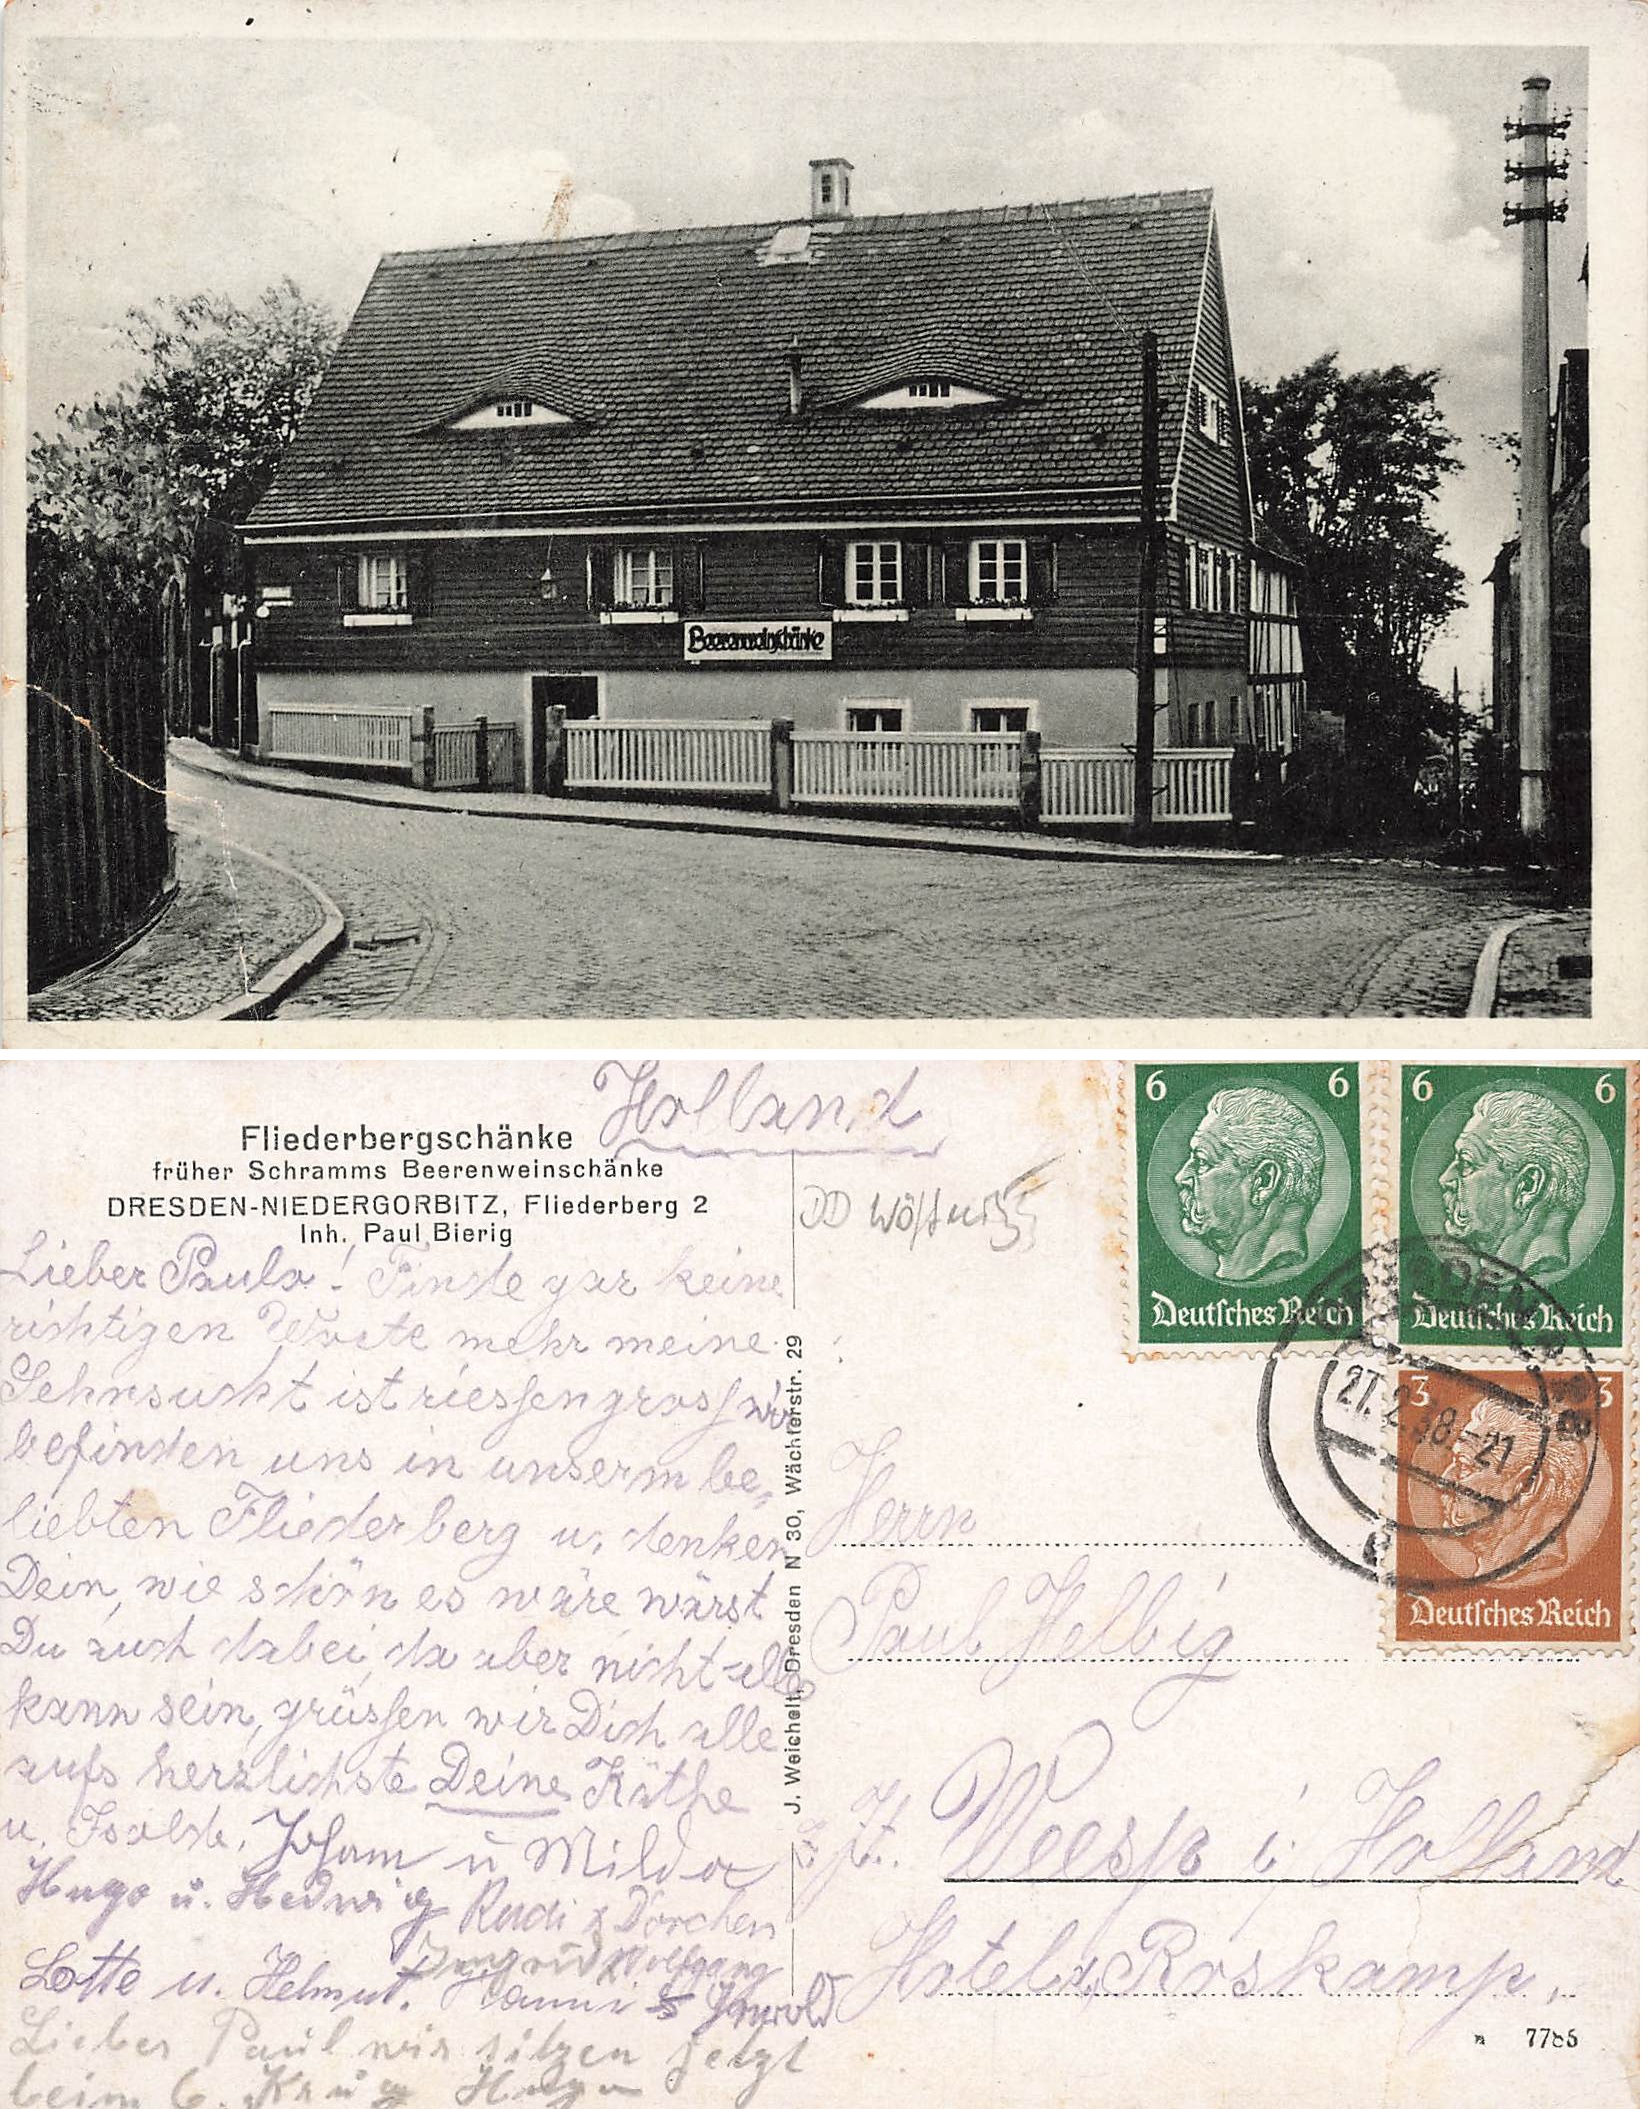 Beerenweinschänke
Holland
Fliederbergschänke
früher Schramms Beerenweinschänke
DRESDEN-NIEDERGORBITZ, Fliederberg 2
Inh. Paul Bierig
DD Wölfnitz
Lieber Paul! Finde gar keine
richtigen Worte mehr meine
Sehnsucht ist riessengross wir
befinden uns in unserm be-
liebten Fliederberg u. denken
Dein, wie schön es wäre wärst
Du auch dabei da aber nicht alles
kann sein, grüssen wir Dich alle
aufs herzlichste Deine Käthe
u. Isolde. Johann u Milda
Hugo u. Hedwig Rudi & Dorchen
Ingrid Wolfgang
Lotte u. Helmut. Hanni
Lieber Paul wir sitzen jetzt
beim 6. Krug Hugo
J. Weichelt, Dresden N 30, Wächterstr. 29
6 6
Deutsches Reich
6 6
Deutsches Reich
3 3
Deutsches Reich
DRESDEN
27.2.38.-21
Herrn
Paul Helbig
z. Zt. Weesp i. Holland
Hotel Roskamp.
7785